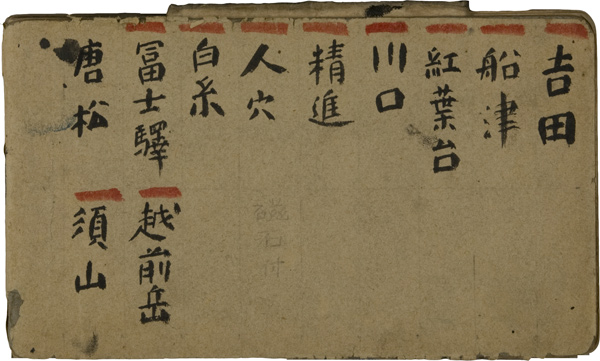 吉田
船津
紅葉台
川口
精進
人穴
白糸
富士驛
越前岳
唐松
須山